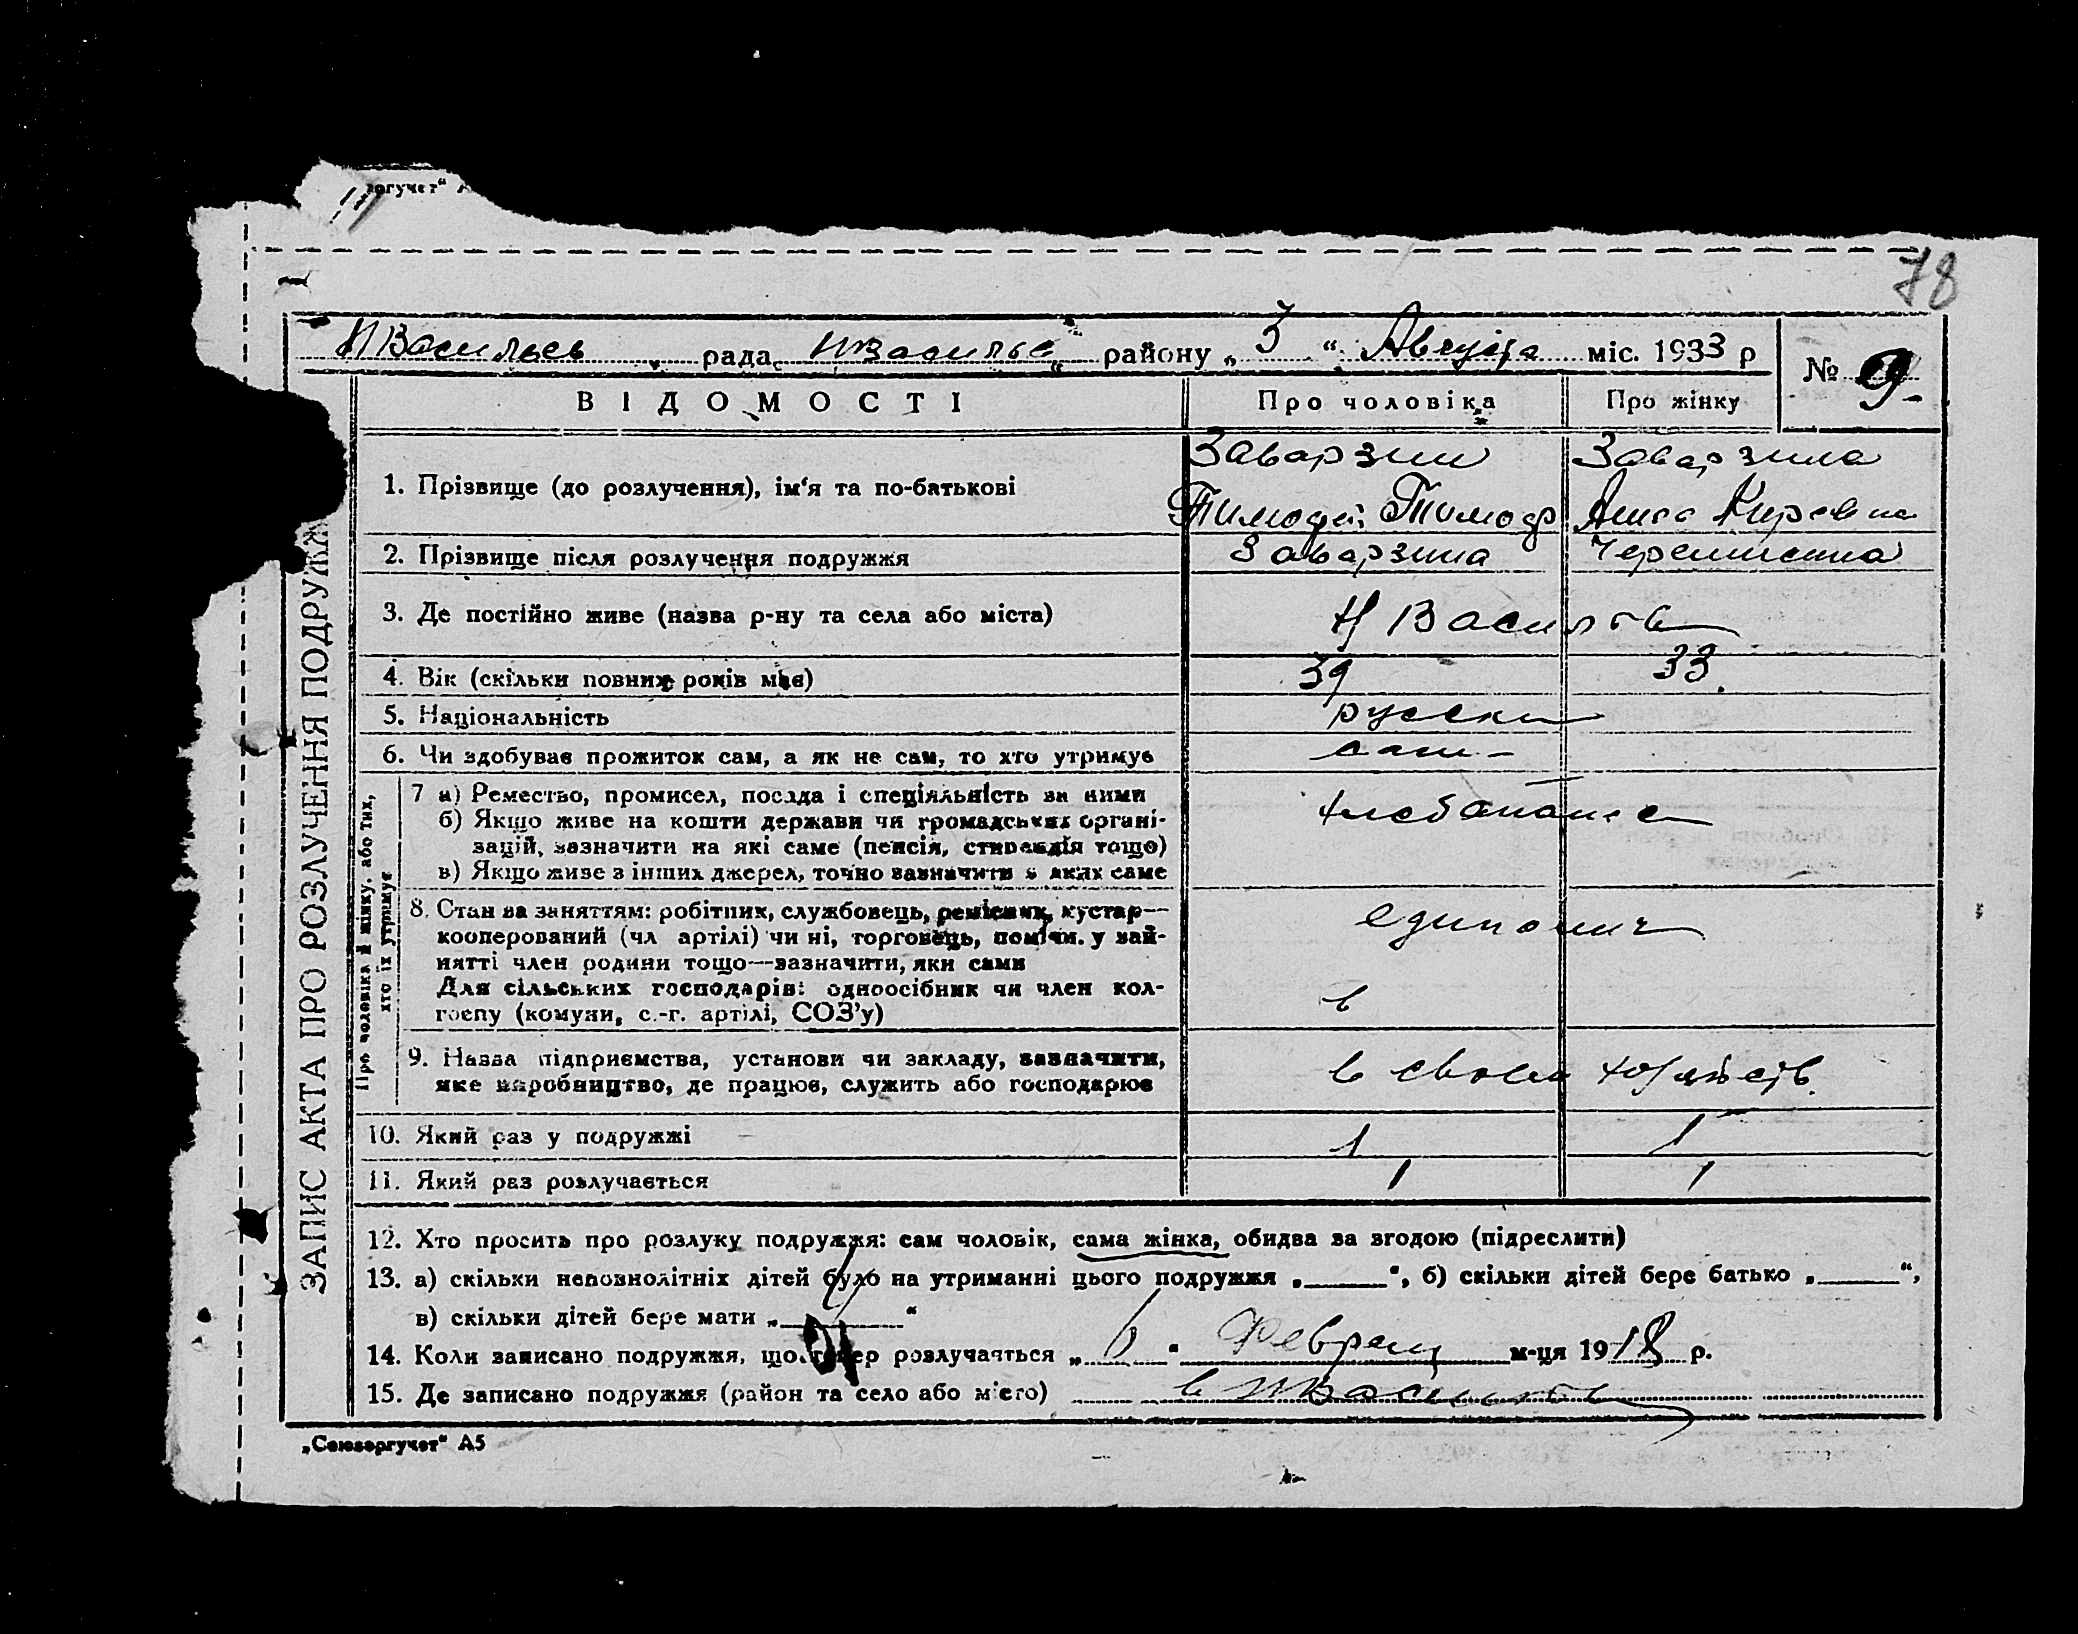 78
НВасильев рада НВасильев району „3“ Августа міс. 1933 р
№ 9
ВІДОМОСТІ
Про чоловіка
Про жінку
ЗАПИС АКТА ПРО РОЗЛУЧЕННЯ ПОДРУЖЖЯ
1. Прізвище (до розлучення), ім'я та по-батькові
Заварзин
Тимофей Тимоф
Заварзина
Анна Киревна
2. Прізвище після розлучення подружжя
Заварзина
Черемисина
3. Де постійно живе (назва р-ну та села або міста)
Н Васильев
4. Вік (скільки повних років має)
39
33
5. Національність
русски
6. Чи здобуває прожиток сам, а як не сам, то хто утримує
сам
Про чоловіка й жінку, або тих,
хто їх утримує
7 а) Ремество, промисел, посада і спеціяльність за ними
б) Якщо живе на кошти держави чи громадських органі-
зацій, зазначити на які саме (пенсія, стипендія тощо)
в) Якщо живе з інших джерел, точно зазначити з яких саме
хлебопашец
8. Стан за заняттям: робітник, службовець, ремісник, кустар—
кооперований (чл артілі) чи ні, торговець, поміч. у зай-
нятті член родини тощо—зазначити, яки сами
Для сільських господарів: одноосібник чи член кол-
госпу (комуни, с.-г. артілі, СОЗ'у)
единолич
в
9. Назва підприємства, установи чи закладу, зазначити,
яке виробництво, де працює, служить або господарює
в своем хозяйств.
10. Який раз у подружжі
1
1
11. Який раз розлучається
1
1
12. Хто просить про розлуку подружжя: сам чоловік, сама жінка, обидва за згодою (підреслити)
13. а) скільки неповнолітніх дітей було на утриманні цього подружжя „ “, б) скільки дітей бере батько „ “,
в) скільки дітей бере мати „ “
14. Коли записано подружжя, що тепер розлучаяться „6“ Феврал м-ця 1918 р.
15. Де записано подружжя (район та село або місто) в НВасильев
„Союзоргучет“ А5